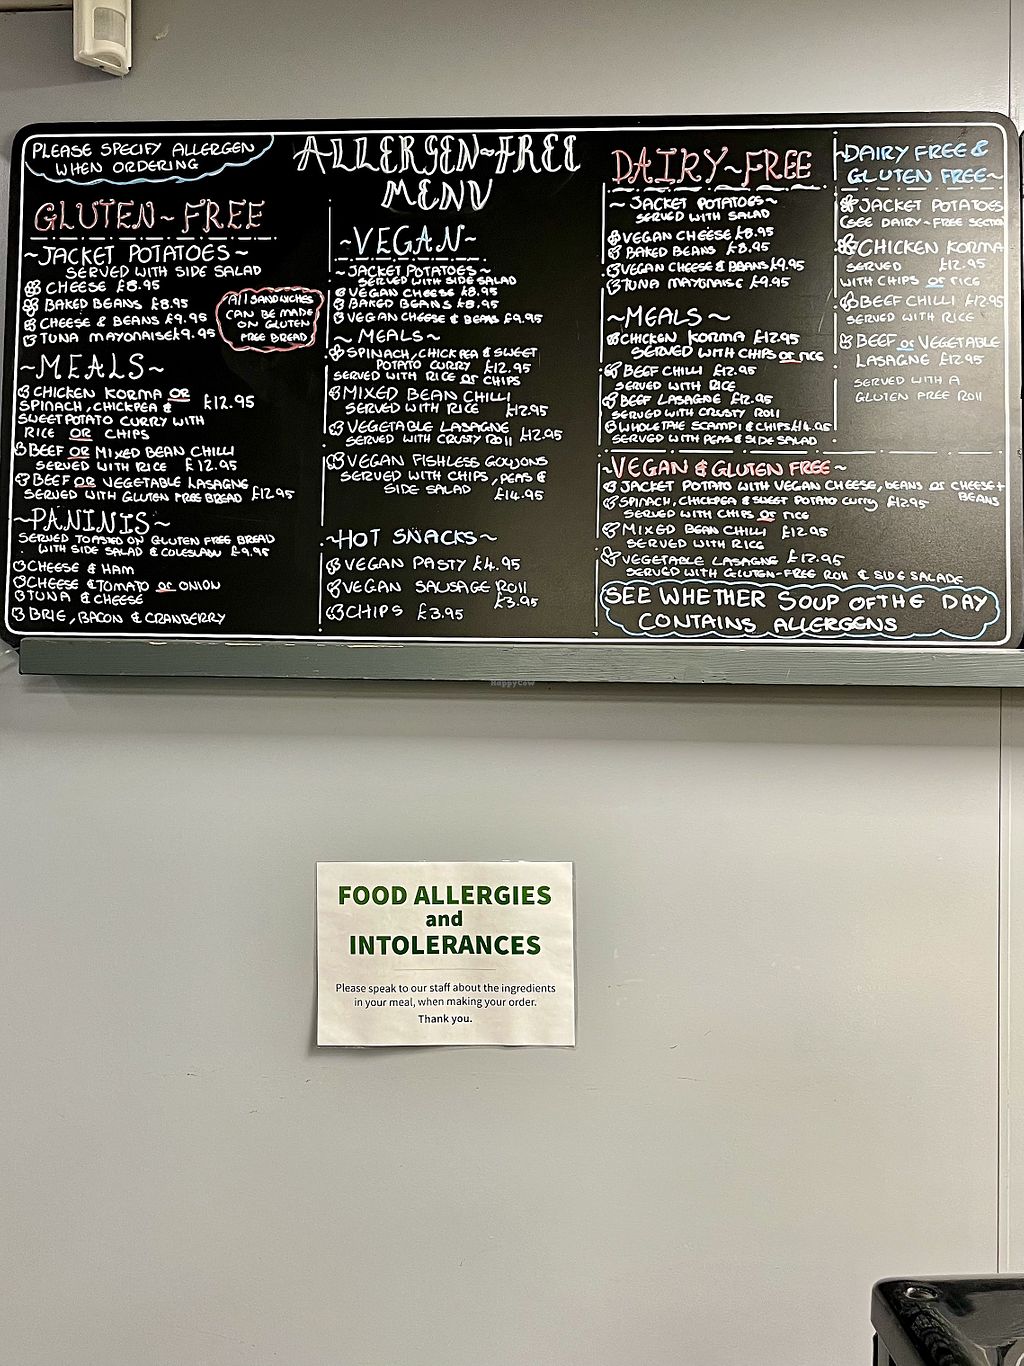 PLEASE SPECIFY ALLERGEN
WHEN ORDERING
ALLERGEN~FREE
MENU
GLUTEN~FREE
~JACKET POTATOES~
SERVED WITH SIDE SALAD
CHEESE £8.95
BAKED BEANS £8.95
CHEESE & BEANS £9.95
TUNA MAYONAISE £9.95
All SANDWICHES
CAN BE MADE
ON GLUTEN
FREE BREAD
~MEALS~
CHICKEN KORMA OR
SPINACH, CHICKPEA & £12.95
SWEETPOTATO CURRY WITH
RICE OR CHIPS
BEEF OR MIXED BEAN CHILLI
SERVED WITH RICE £12.95
BEEF OR VEGETABLE LASAGNE
SERVED WITH GLUTEN FREE BREAD £12.95
~PANINIS~
SERVED TOASTED ON GLUTEN FREE BREAD
WITH SIDE SALAD & COLESLAW £9.95
CHEESE & HAM
CHEESE & TOMATO or ONION
TUNA & CHEESE
BRIE, BACON & CRANBERRY
~VEGAN~
~JACKET POTATOES~
SERVED WITH SIDE SALAD
VEGAN CHEESE £8.95
BAKED BEANS £8.95
VEGAN CHEESE & BEANS £9.95
~MEALS~
SPINACH, CHICKPEA & SWEET
POTATO CURRY £12.95
SERVED WITH RICE OR CHIPS
MIXED BEAN CHILLI
SERVED WITH RICE £12.95
VEGETABLE LASAGNE
SERVED WITH CRUSTY ROll £12.95
VEGAN FISHLESS GOUJONS
SERVED WITH CHIPS, PEAS &
SIDE SALAD £14.95
~HOT SNACKS~
VEGAN PASTY £4.95
VEGAN SAUSAGE ROll
£3.95
CHIPS £3.95
DAIRY~FREE
~JACKET POTATOES~
SERVED WITH SALAD
VEGAN CHEESE £8.95
BAKED BEANS £8.95
VEGAN CHEESE & BEANS £9.95
TUNA MAYONAISE £9.95
~MEALS~
CHICKEN KORMA £12.95
SERVED WITH CHIPS OR RICE
BEEF CHILLI £12.95
SERVED WITH RICE
BEEF LASAGNE £12.95
SERVED WITH CRUSTY ROll
WHOLETAIL SCAMPI & CHIPS £14.95
SERVED WITH PEAS & SIDE SALAD
~DAIRY FREE &
GLUTEN FREE~
JACKET POTATOES
(SEE DAIRY-FREE SECTION
CHICKEN KORMA
SERVED £12.95
WITH CHIPS or rice
BEEF CHILLI £12.95
SERVED WITH RICE
BEEF or VEGETABLE
LASAGNE £12.95
SERVED WITH A
GLUTEN FREE ROll
~VEGAN & GLUTEN FREE~
JACKET POTATO WITH VEGAN CHEESE, BEANS or CHEESE+
BEANS
SPINACH, CHICKPEA & SWEET POTATO CURRY £12.95
SERVED WITH CHIPS or rice
MIXED BEAN CHILLI £12.95
SERVED WITH RICE
VEGETABLE LASAGNE £12.95
SERVED WITH GLUTEN-FREE ROll & SIDE SALADE
SEE WHETHER SOUP OF THE DAY
CONTAINS ALLERGENS
HappyCow
FOOD ALLERGIES
and
INTOLERANCES
Please speak to our staff about the ingredients
in your meal, when making your order.
Thank you.